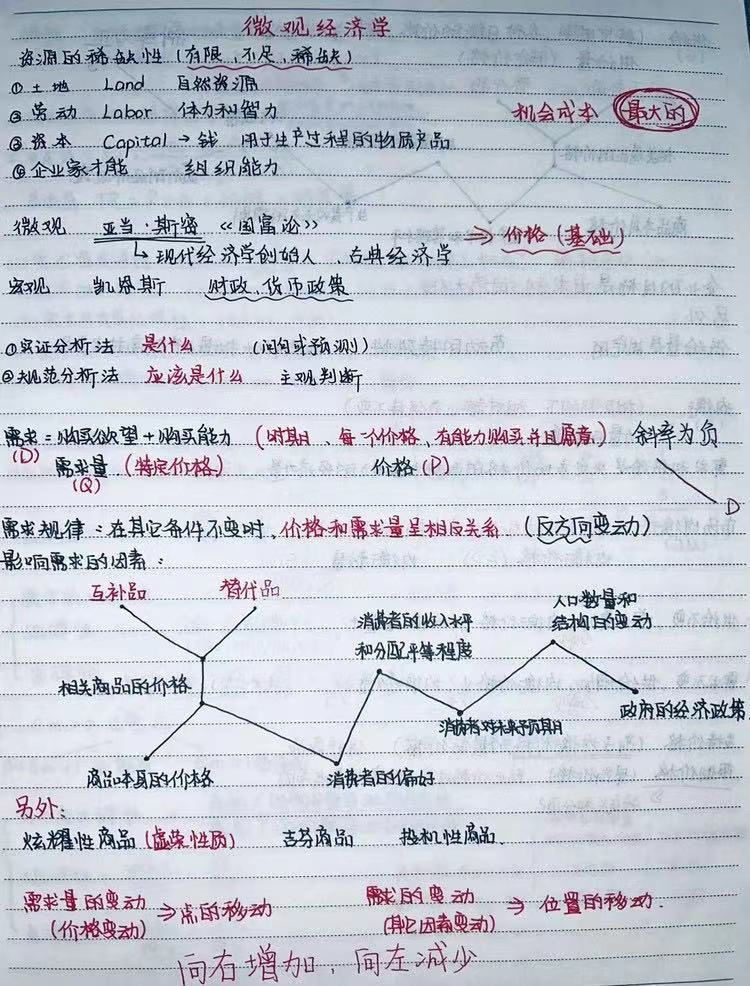 微观经济学
资源的稀缺性 (有限、不足、稀缺)
①土地 Land 自然资源
②劳动 Labor 体力和智力
机会成本 最大的
③资本 Capital → 钱 用于生产过程的物质产品
④企业家才能 组织能力
微观 亚当·斯密 《国富论》 ⇒ 价格(基础)
↳ 现代经济学创始人、古典经济学
宏观 凯恩斯 财政、货币政策
①实证分析法 是什么 (问句或预测)
②规范分析法 应该是什么 主观判断
需求 = 购买欲望 + 购买能力 (时期、每一个价格、有能力购买并且愿意) 斜率为负
(D) 需求量 (特定价格) 价格(P)
(Q)
D
需求规律:在其它条件不变时,价格和需求量呈相反关系 (反方向变动)
影响需求的因素:
互补品 替代品
消费者的收入水平
和分配平等程度
人口数量和
结构的变动
相关商品的价格
消费者对未来预期
政府的经济政策
商品本身的价格 消费者的偏好
另外:
炫耀性商品 (虚荣性质) 吉芬商品 投机性商品.
需求量的变动 ⇒ 点的移动
(价格变动)
需求的变动 ⇒ 位置的移动.
(其它因素变动)
向右增加,向左减少